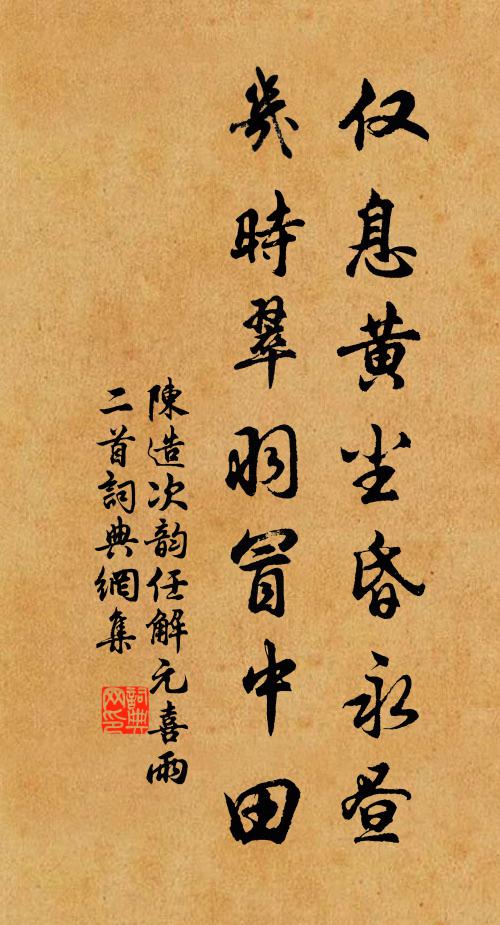 仅息黄尘昏永昼
幾時翠羽冒中田
陳造次韵任解元喜雨
二首詞典網集
詞典
网印